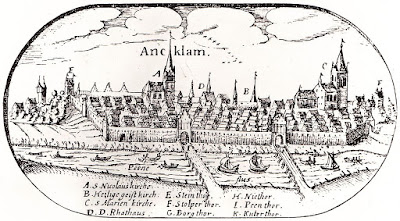 Ancklam.
A
D
B
C
E
F
Peene
flus
A. S Nicolaus kirche.
B. Heilige geist kirch.
C. S Marien kirche.
D. D. Rhathaus.
E. Stein thor.
F. Stolper thor.
G. Borg thor.
H. Niether.
I. Peen thor.
K. Kuter thor.